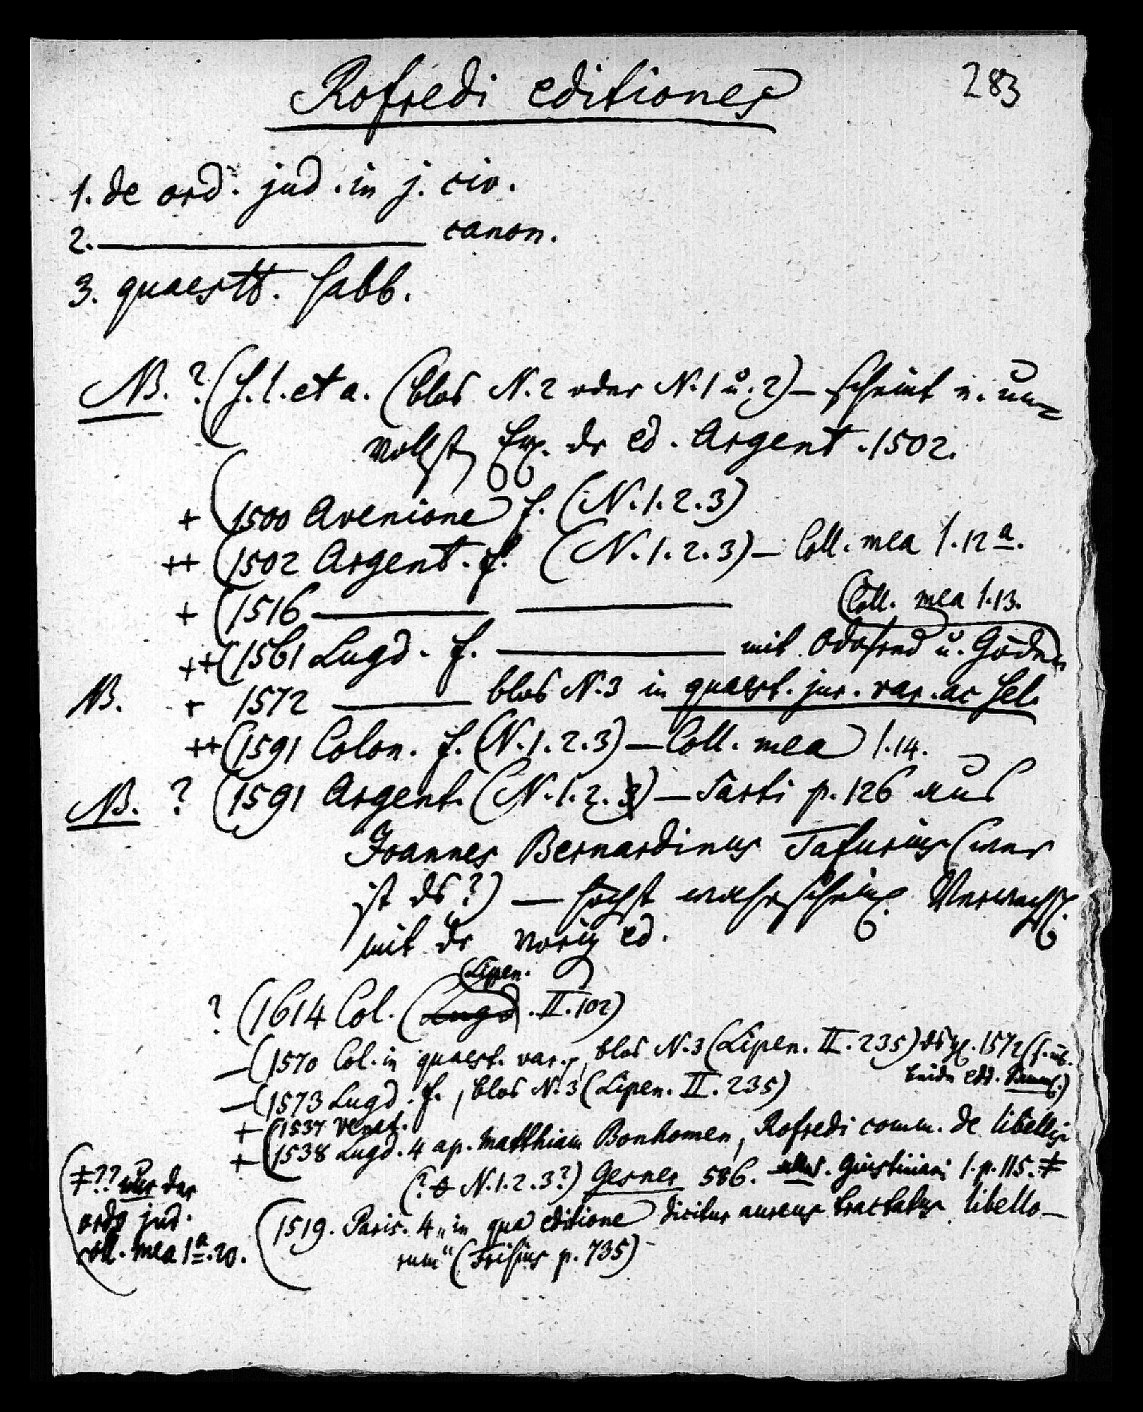 283
Rofredi editiones
1. de ord. jud. in j. civ.
2. ——— canon.
3. quaestt. Sabb.
NB. ? (s. l. et a. (blos N. 2 oder N. 1 u. 2) — scheint e. un=
vollst. Ex. der ed. Argent. 1502.
+ (1500 Avenione f. (N. 1. 2. 3)
++ (1502 Argent. f. (N. 1. 2. 3) — Coll. mea 1. 12 a.
+ (1516 ——— ———
(Coll. mea 1. 13.
++ (1561 Lugd. f. ——— mit Odofred u.
NB. + 1572 ——— blos N. 3 in quaest. jur. var. ac sel.
++ (1591 Colon. f. (N. 1. 2. 3) — Coll. mea 1. 14.
NB. ? (1591 Argent. (N. 1. 2. 3) — Sarti p. 126 aus
Joannes Bernardinus Tafurius (wer
ist ds?) — höchst wahrscheinl. Verwechsl.
mit der vorig. ed.
Lipen.
? (1614 Col. (Lugd. II. 102)
— (1570 Col. in quaest. var., blos N. 3 (Lipen. II. 235) 1572
beide edd.
— (1573 Lugd. f., blos N. 3 (Lipen. II. 235)
+ (1537 Venet.
+ (1538 Lugd. 4 ap. Matthiam Bonhomen, Rofredi comm. de libellis
(? N. 1. 2. 3?) Gesner 586. Giustiniani 1. p. 115. ≠
≠ ?? nur der
ordo jud.
coll. mea 1 a. 20.
(1519. Paris. 4 „in qua editione dicitur aureus tractatus libello—
rum“ (Frisius p. 735)